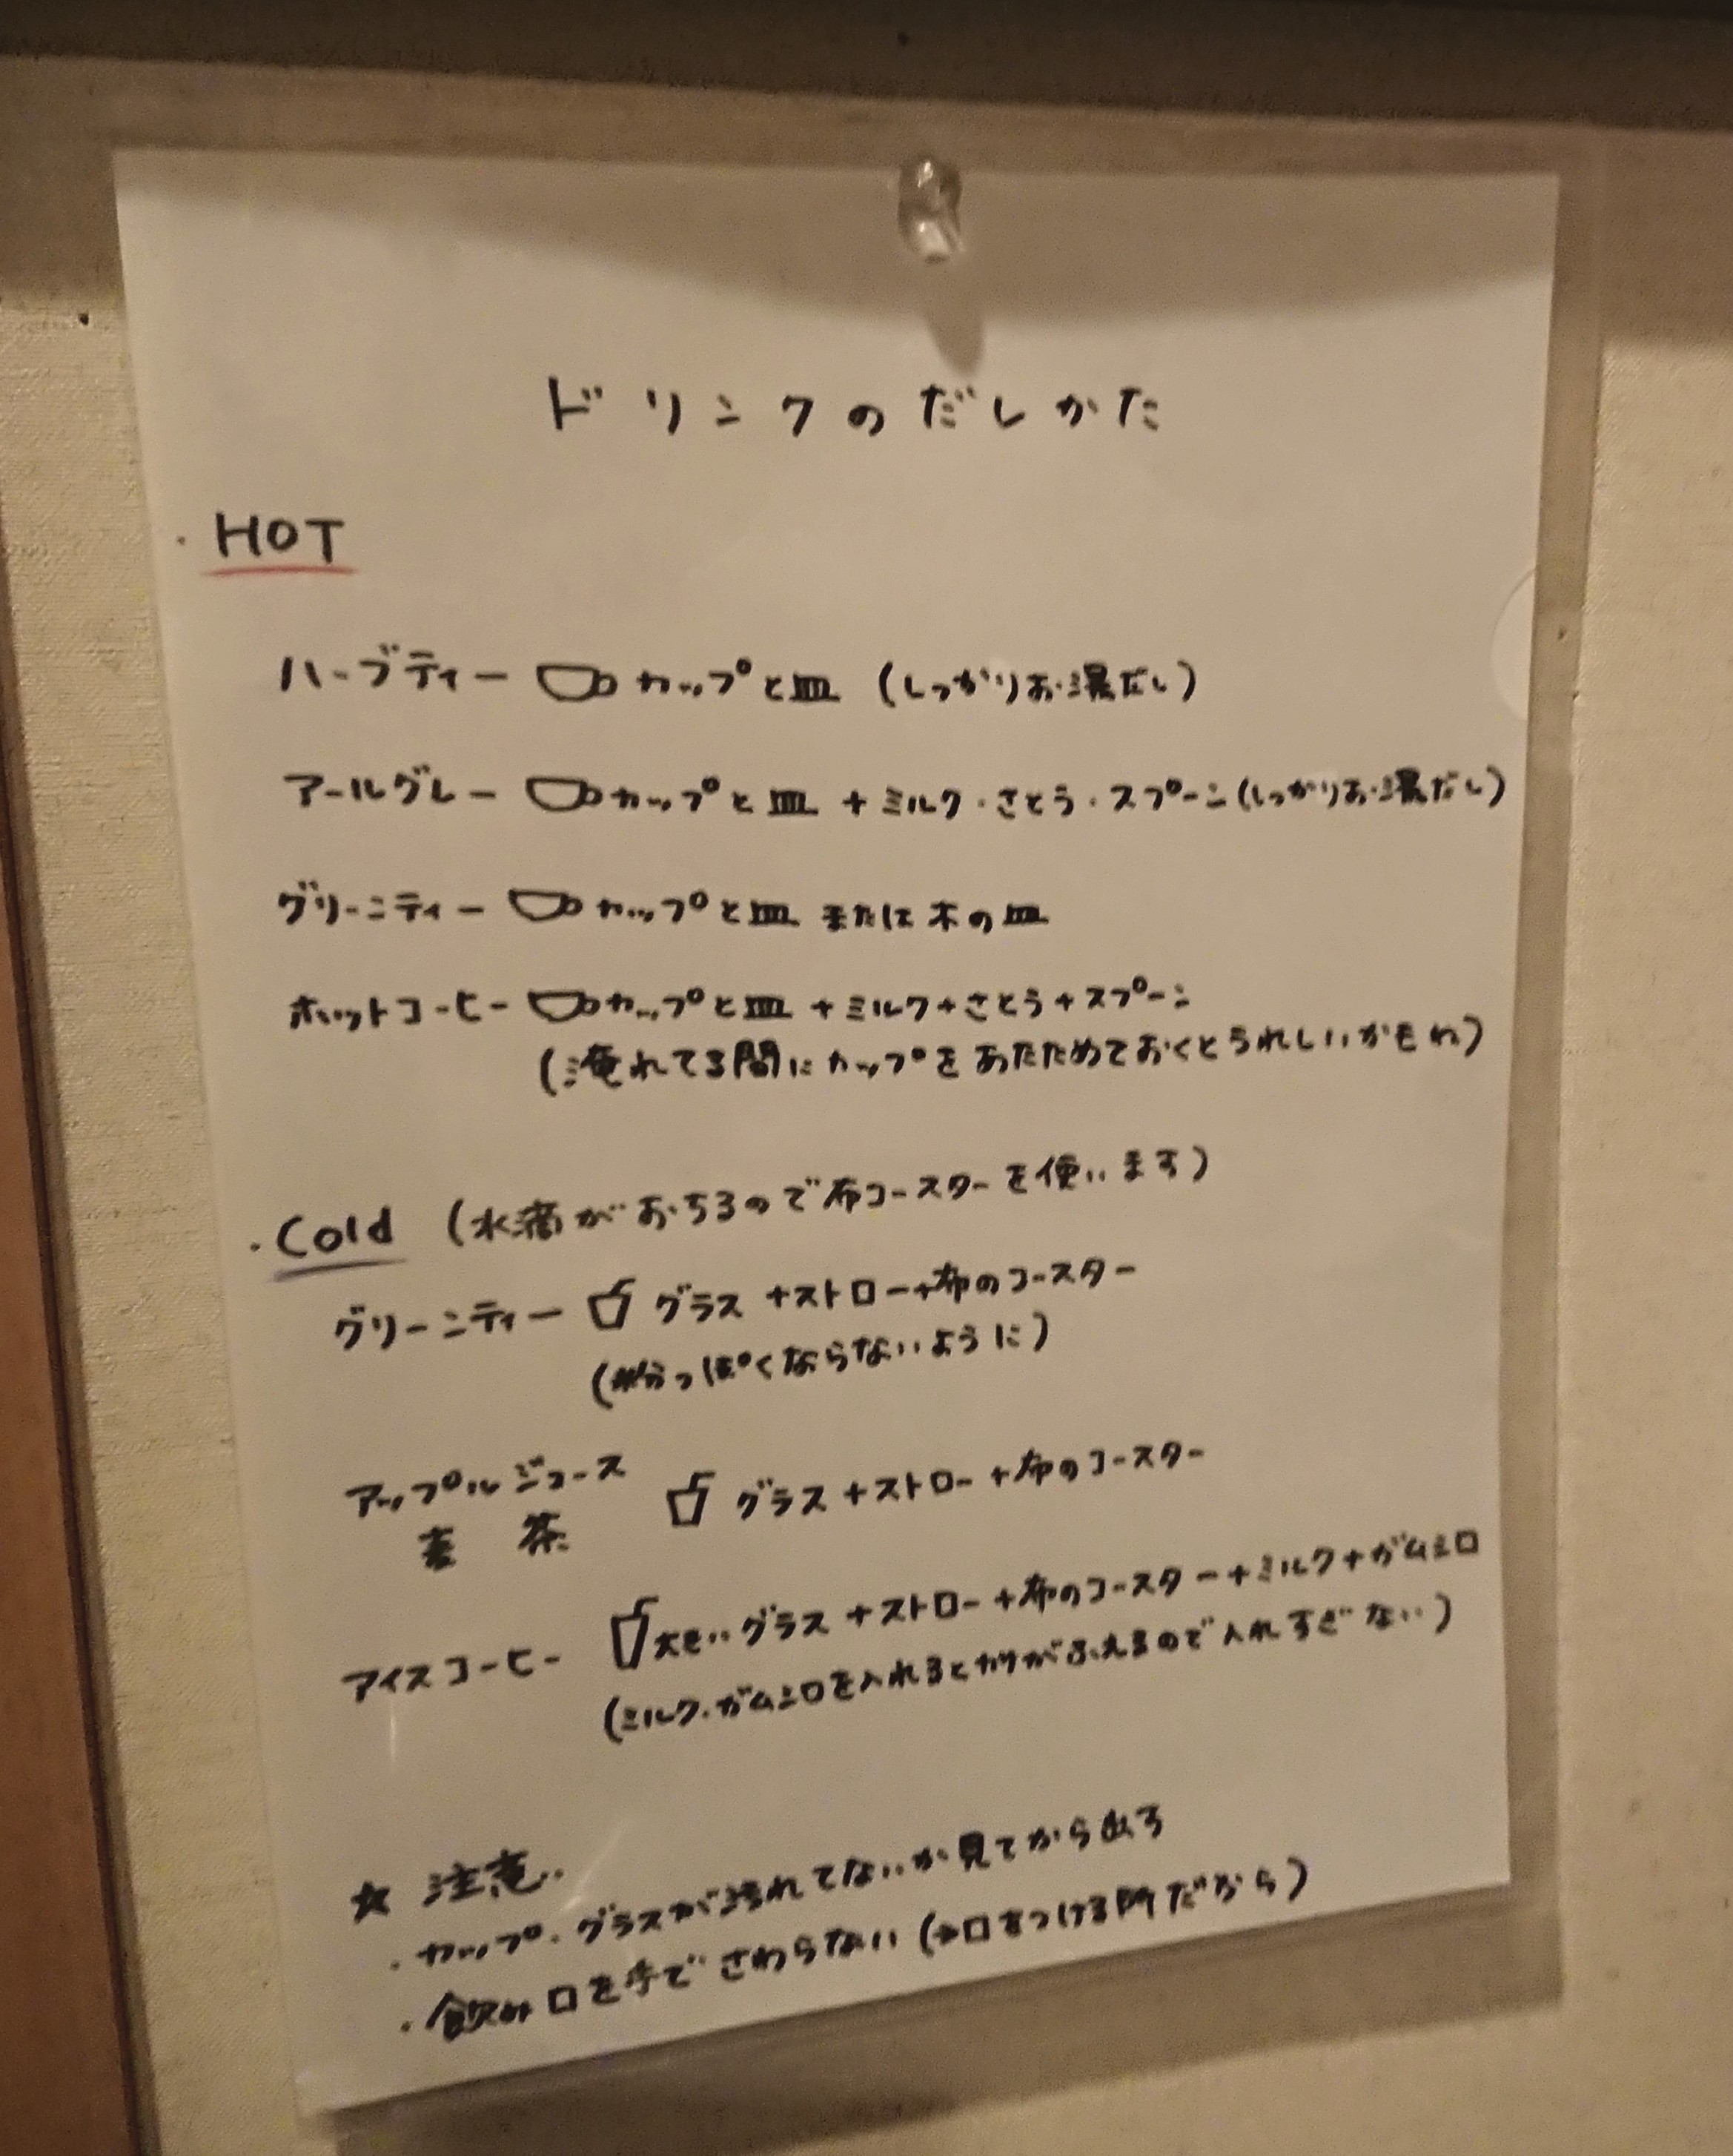 ドリンクのだしかた
・HOT
ハーブティー カップと皿 (しっかりお湯だし)
アールグレー カップと皿 + ミルク・さとう・スプーン(しっかりお湯だし)
グリーンティー カップと皿 または 木の皿
ホットコーヒー カップと皿 +ミルク+さとう+スプーン
(淹れてる間にカップをあたためておくとうれしいかもね)
・Cold (水滴がおちるので布コースターを使います)
グリーンティー グラス +ストロー+布のコースター
(っぽくならないように)
アップルジュース グラス +ストロー+布のコースター
麦茶
アイスコーヒー 大きいグラス +ストロー+布のコースター+ミルク+ガムシロ
(ミルク・ガムシロを入れるとカサがふえるので入れすぎない)
☆ 注意
・カップ・グラスが汚れてないか見てから出す
・飲み口を手でさわらない (→口をつける所だから)